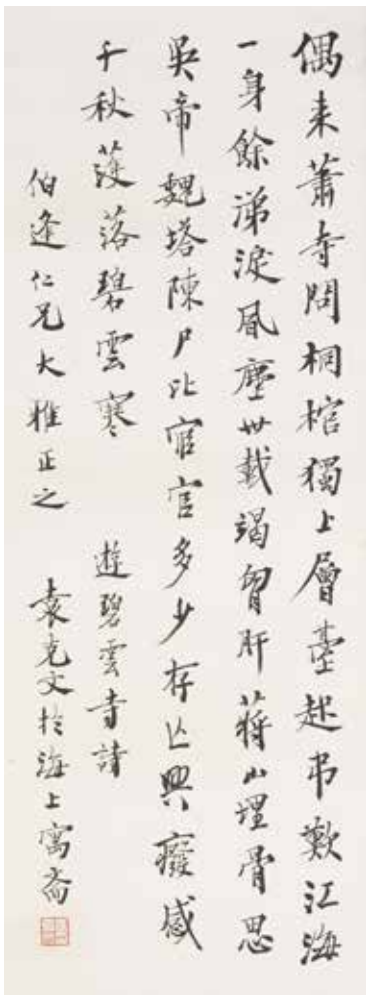 偶来蕭寺問桐棺獨上層臺起弔歎江海
一身餘涕淚風塵卅載竭胷肝蔣山埋骨思
吳帝魏塔陳尸比宦官多少存亡興癈感
千秋濩落碧雲寒 遊碧雲寺詩
伯逢仁兄大雅正之 袁克文於海上寓斋